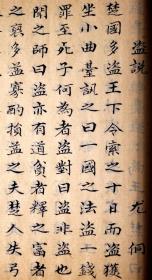 盜說 尤侗
楚國多盜王下令索之十日而盜獲
坐小曲臺訊之曰一國之法盜一錢
罪至死子何為者盜對曰盜非盜也
聞之師曰盜亦有道貧者釋之富者
之裒多益寡酌損益之夫楚人失弓